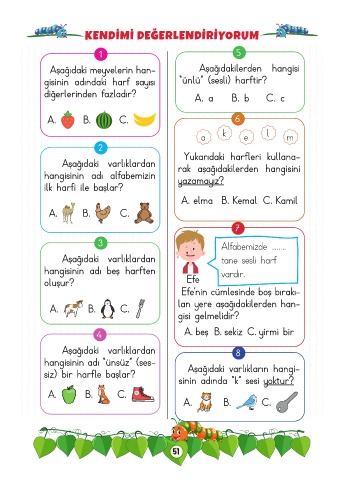 KENDİMİ DEĞERLENDİRİYORUM
1
Aşağıdaki meyvelerin han-
gisinin adındaki harf sayısı
diğerlerinden fazladır?
A. B. C.
2
Aşağıdaki varlıklardan
hangisinin adı alfabemizin
ilk harfi ile başlar?
A. B. C.
3
Aşağıdaki varlıklardan
hangisinin adı beş harften
oluşur?
A. B. C.
4
Aşağıdaki varlıklardan
hangisinin adı "ünsüz" (ses-
siz) bir harfle başlar?
A. B. C.
5
Aşağıdakilerden hangisi
"ünlü" (sesli) harftir?
A. a B. b C. c
6
a k e l m
Yukarıdaki harfleri kullana-
rak aşağıdakilerden hangisini
yazamayız?
A. elma B. Kemal C. Kamil
7
Alfabemizde .......
tane sesli harf
vardır.
Efe
Efe'nin cümlesinde boş bırakı-
lan yere aşağıdakilerden han-
gisi gelmelidir?
A. beş B. sekiz C. yirmi bir
8
Aşağıdaki varlıkların hangi-
sinin adında "k" sesi yoktur?
A. B. C.
51